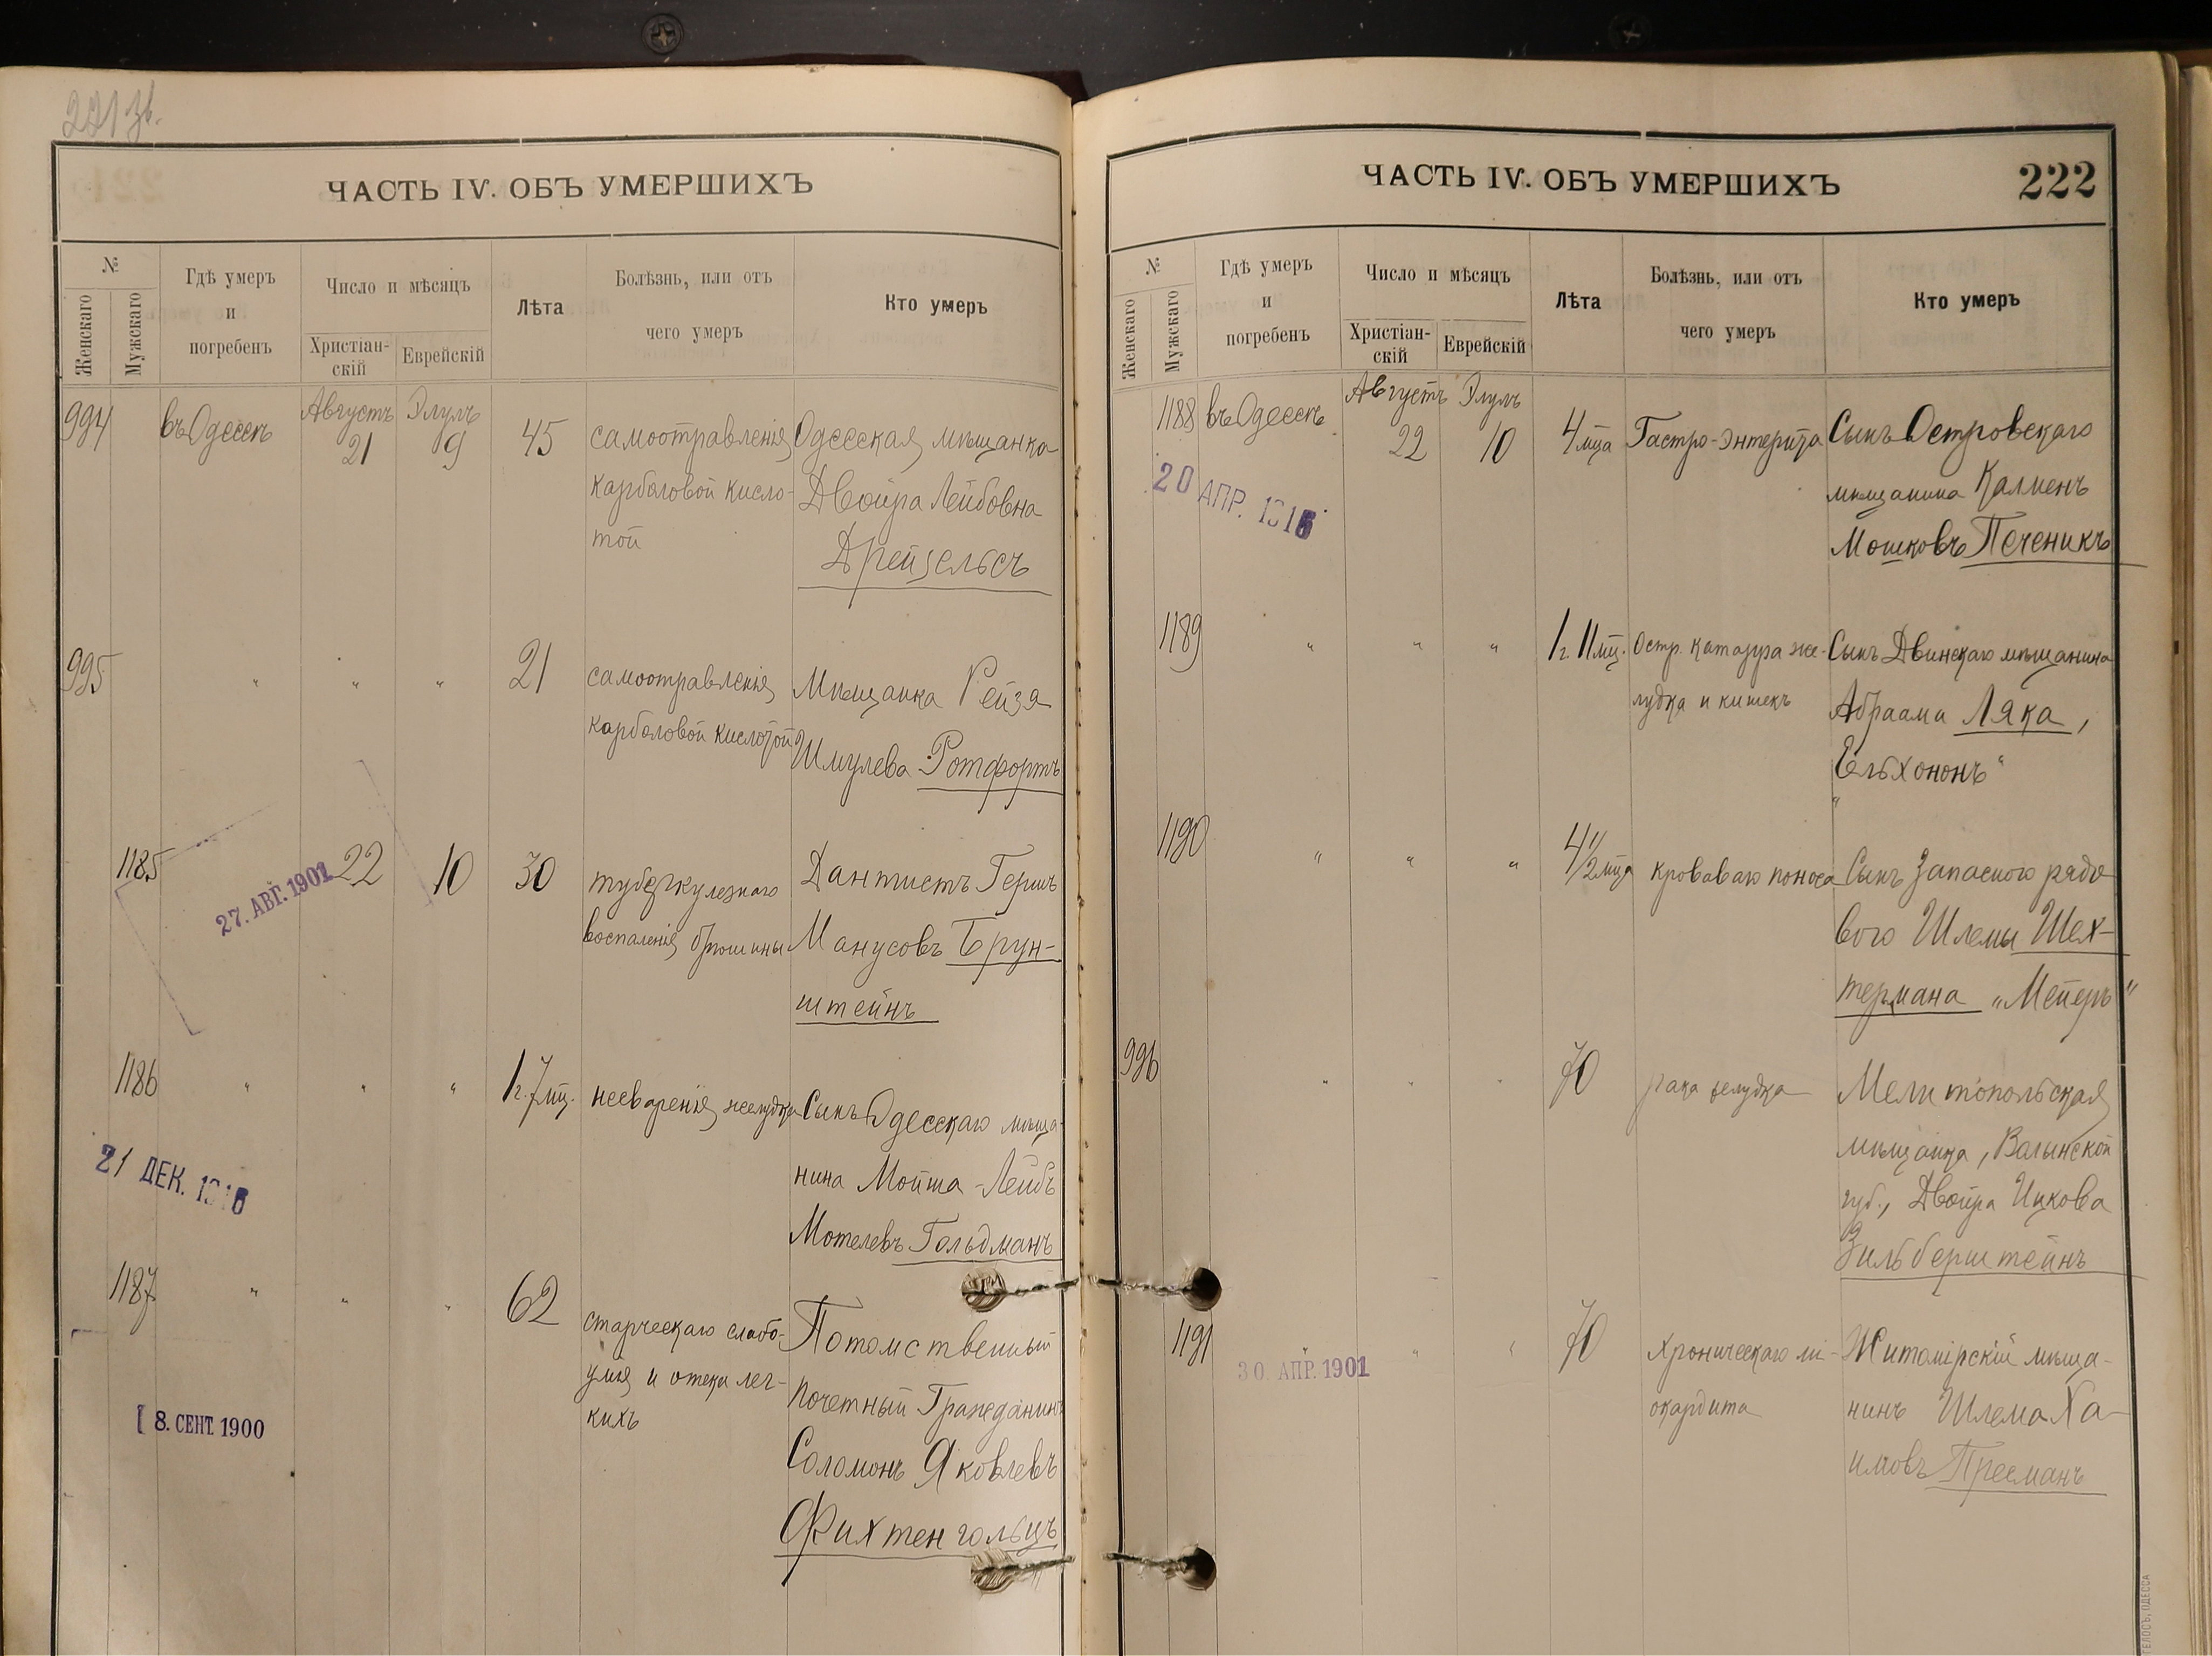 221 зв.
ЧАСТЬ IV. ОБЪ УМЕРШИХЪ
№
Женскаго
Мужскаго
Гдѣ умеръ
и
погребенъ
Число и мѣсяцъ
Христіан-
скій
Еврейскій
Лѣта
Болѣзнь, или отъ
чего умеръ
Кто умеръ
994
въ Одессѣ
Августъ
21
Элулъ
9
45
самоотравленія
карболовой кисло-
той
Одесская мѣщанка
Двойра Лейбовна
Дрейзельсъ
995
" " "
21
самоотравленія
карболовой кислотой
Мѣщанка Рейзя
Шмулева Ротфортъ
1185
27. АВГ. 1901
22
10
30
туберкулезнаго
воспаленія брюшины
Дантистъ Гершъ
Манусовъ Брун-
штейнъ
1186
" " "
1 г. 7 мц.
несваренія желудка
Сынъ Одесскаго мѣща-
нина Мойша-Лейбъ
Мотелевъ Гольдманъ
21 ДЕК. 1916
1187
" " "
62
старческаго слабо-
умія и отека лег-
кихъ
Потомственный
почетный Гражданинъ
Соломонъ Яковлевъ
Фихтенгольцъ
8. СЕНТ. 1900
ЧАСТЬ IV. ОБЪ УМЕРШИХЪ
222
№
Женскаго
Мужскаго
Гдѣ умеръ
и
погребенъ
Число и мѣсяцъ
Христіан-
скій
Еврейскій
Лѣта
Болѣзнь, или отъ
чего умеръ
Кто умеръ
1188
въ Одессѣ
Августъ
22
Элулъ
10
4 мца
Гастро-энтерита
Сынъ Островскаго
мѣщанина Калменъ
Мошковъ Печеникъ
20 АПР. 1916
1189
" " "
1 г. 11 мц.
Остр. катарра же-
лудка и кишекъ
Сынъ Двинскаго мѣщанина
Абраама Ляка,
"Ельхононъ"
1190
" " "
4 1/2 мца
кроваваго поноса
Сынъ запасного рядо
вого Шлемы Шех-
термана "Мейеръ"
996
" " "
70
рака желудка
Мелитопольская
мѣщанка, Волынской
губ., Двойра Ицкова
Зильберштейнъ
1191
" " "
30. АПР. 1901
70
хроническаго мі-
окардита
Житомірскій мѣща-
нинъ Шлема Ха-
имовъ Пресманъ